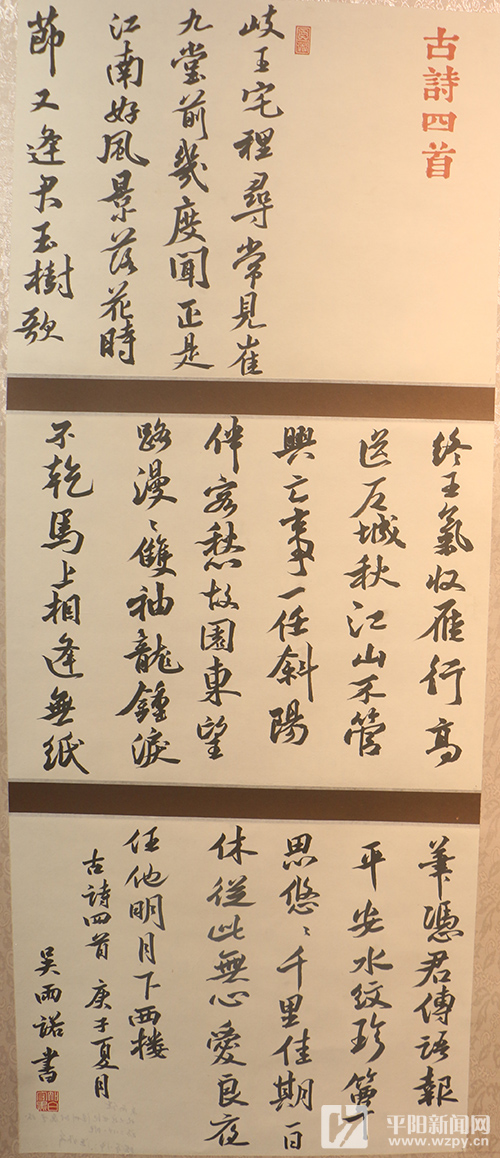 古詩四首
岐王宅裡尋常見崔
九堂前幾度聞正是
江南好風景落花時
節又逢君玉樹歌
終王氣收雁行高
送石城秋江山不管
興亡事一任斜陽
伴客愁故園東望
路漫〻雙袖龍鍾淚
不乾馬上相逢無紙
筆憑君傳語報
平安水紋珍簟
思悠〻千里佳期一夕
休從此無心愛良夜
任他明月下西楼
古詩四首 庚子夏月
吳雨諾書
平阳新闻网
www.wzpy.cn